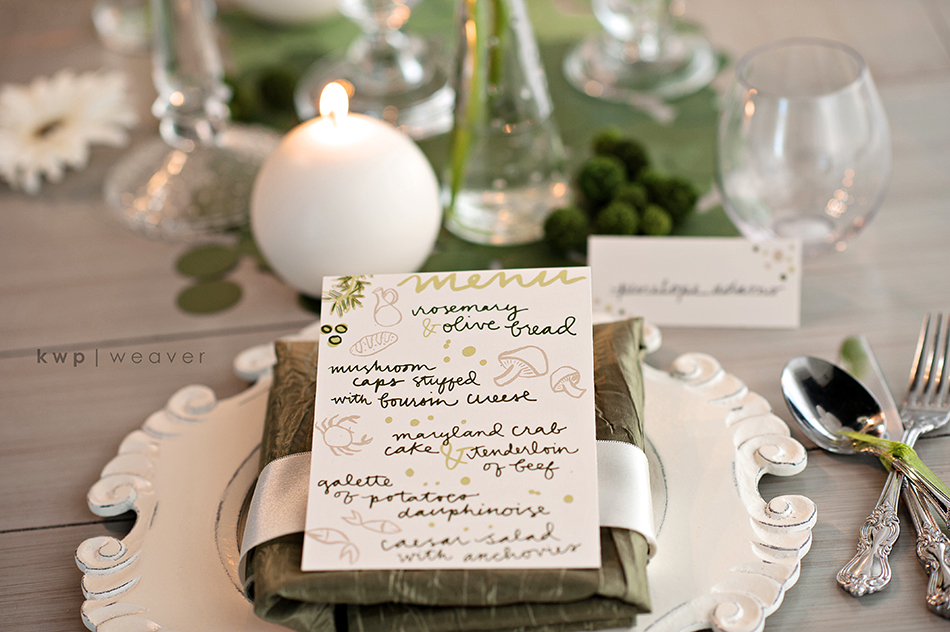 menu
rosemary
& olive bread
mushroom
caps stuffed
with boursin cheese
maryland crab
cake & tenderloin
of beef
galette
of potatoes
dauphinoise
caesar salad
with anchovies
penelope adams
kwp | weaver